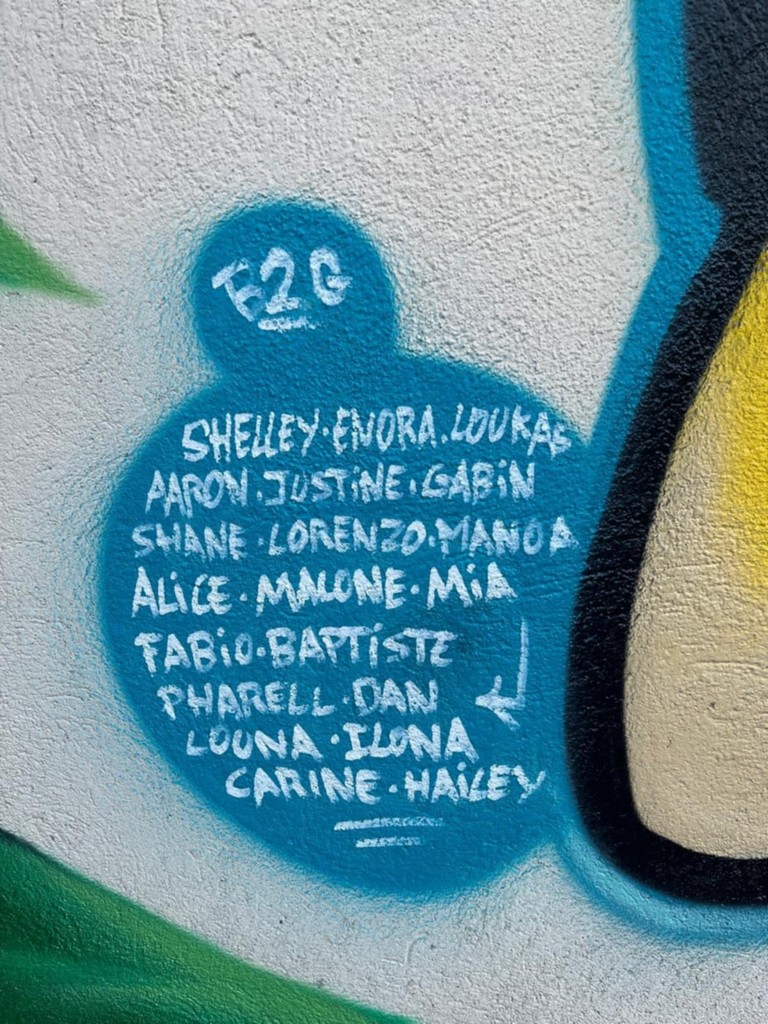 B2G
SHELLEY·ENORA.LOUKAS
AARON·JUSTiNE·GABiN
SHANE·LORENZO·MANOA
ALiCE·MALONE·MiA
FABiO·BAPTiSTE
PHARELL·DAN
LOUNA·ILONA
CARINE·HAiLEY